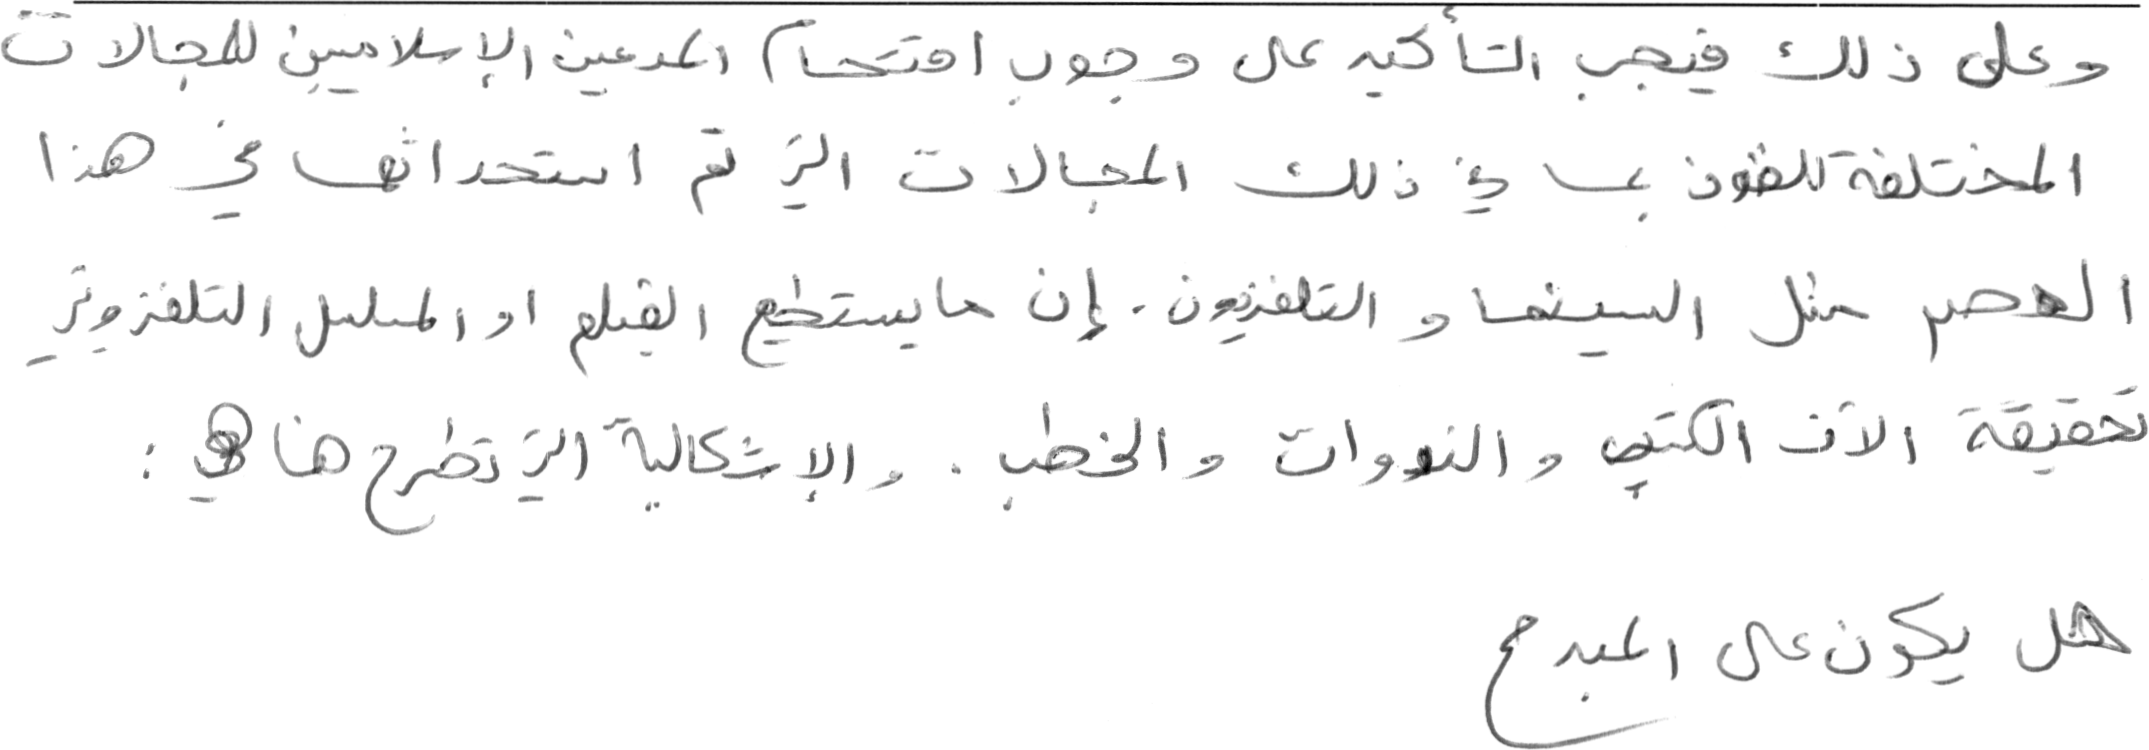 وعلى ذلك فيجب التأكيد على وجوب اقتحام المدعين الإسلاميين للمجالات
المختلفة للفنون بما في ذلك المجالات التي تم استحداثها في هذا
العصر مثل السينما والتلفزيون. إن ما يستطيع الفيلم او المسلسل التلفزيوني
تحقيقة الآف الكتب والندوات والخطب. والإشكالية التي تطرح هنا هي :
هل يكون على المبدع